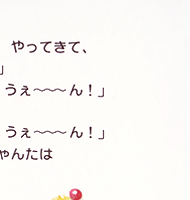 やってきて、
」
うぇ〜〜〜ん！」
うぇ〜〜〜ん！」
ゃんたは